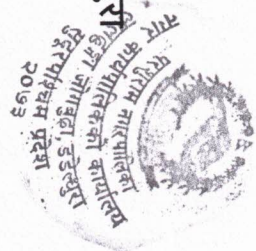 परशुराम नगरपालिका
नगर कार्यपालिकाको कार्यालय
जोगबुढा डडेल्धुरा
सुदूरपश्चिम प्रदेश
२०७३